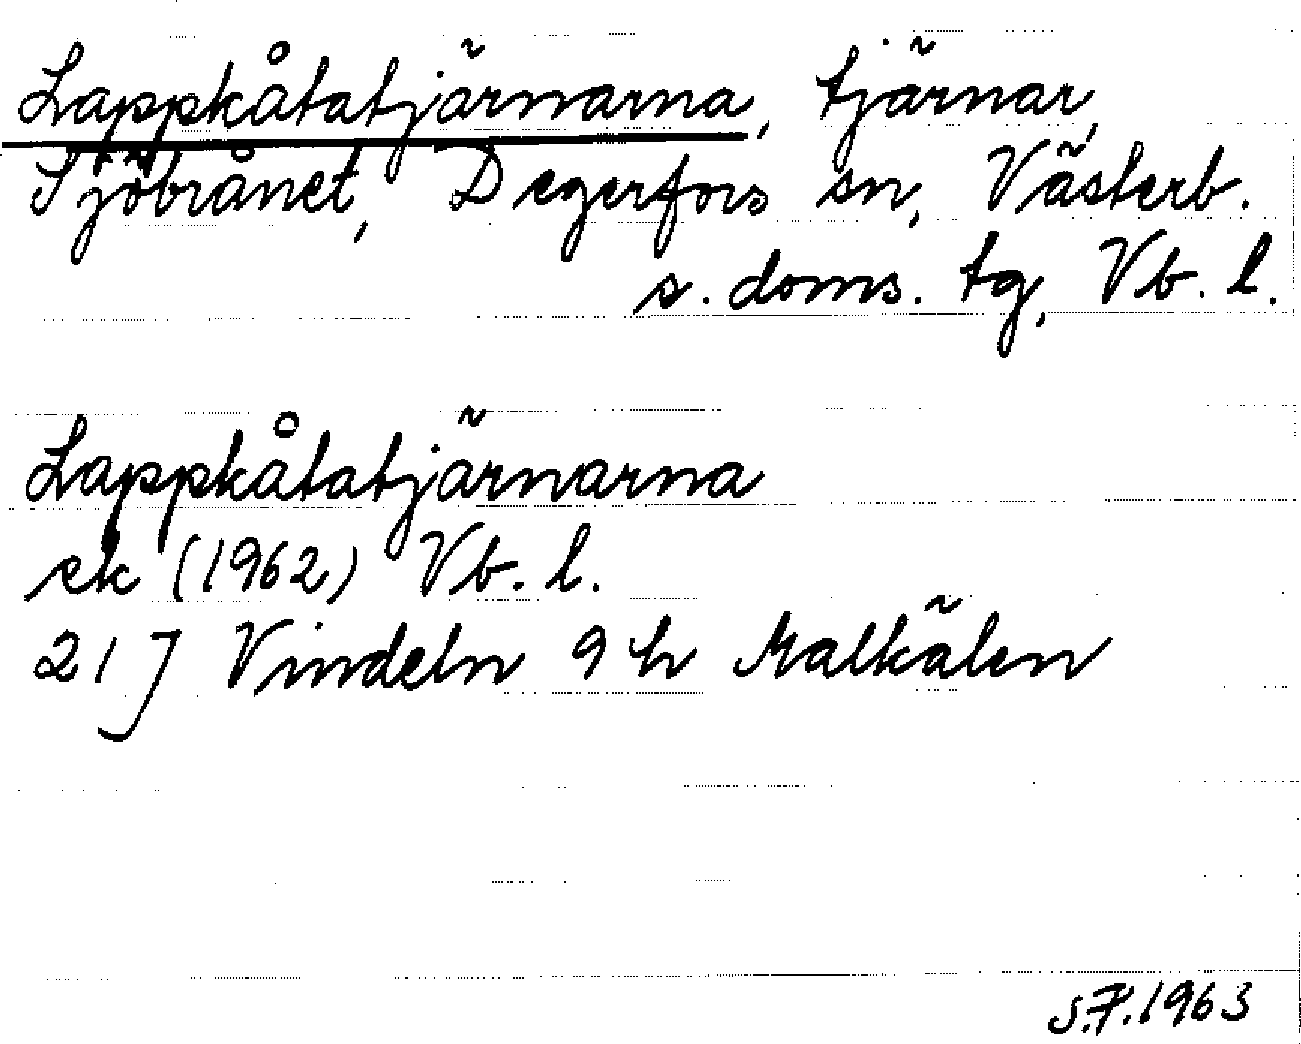 Lappkåtatjärnarna, tjärnar,
Sjöbrånet, Degerfors sn, Västerb.
s. doms. tg, Vb. l.
Lappkåtatjärnarna
ek (1962) Vb. l.
21 J Vindeln 9 h Malkälen
S.F. 1963